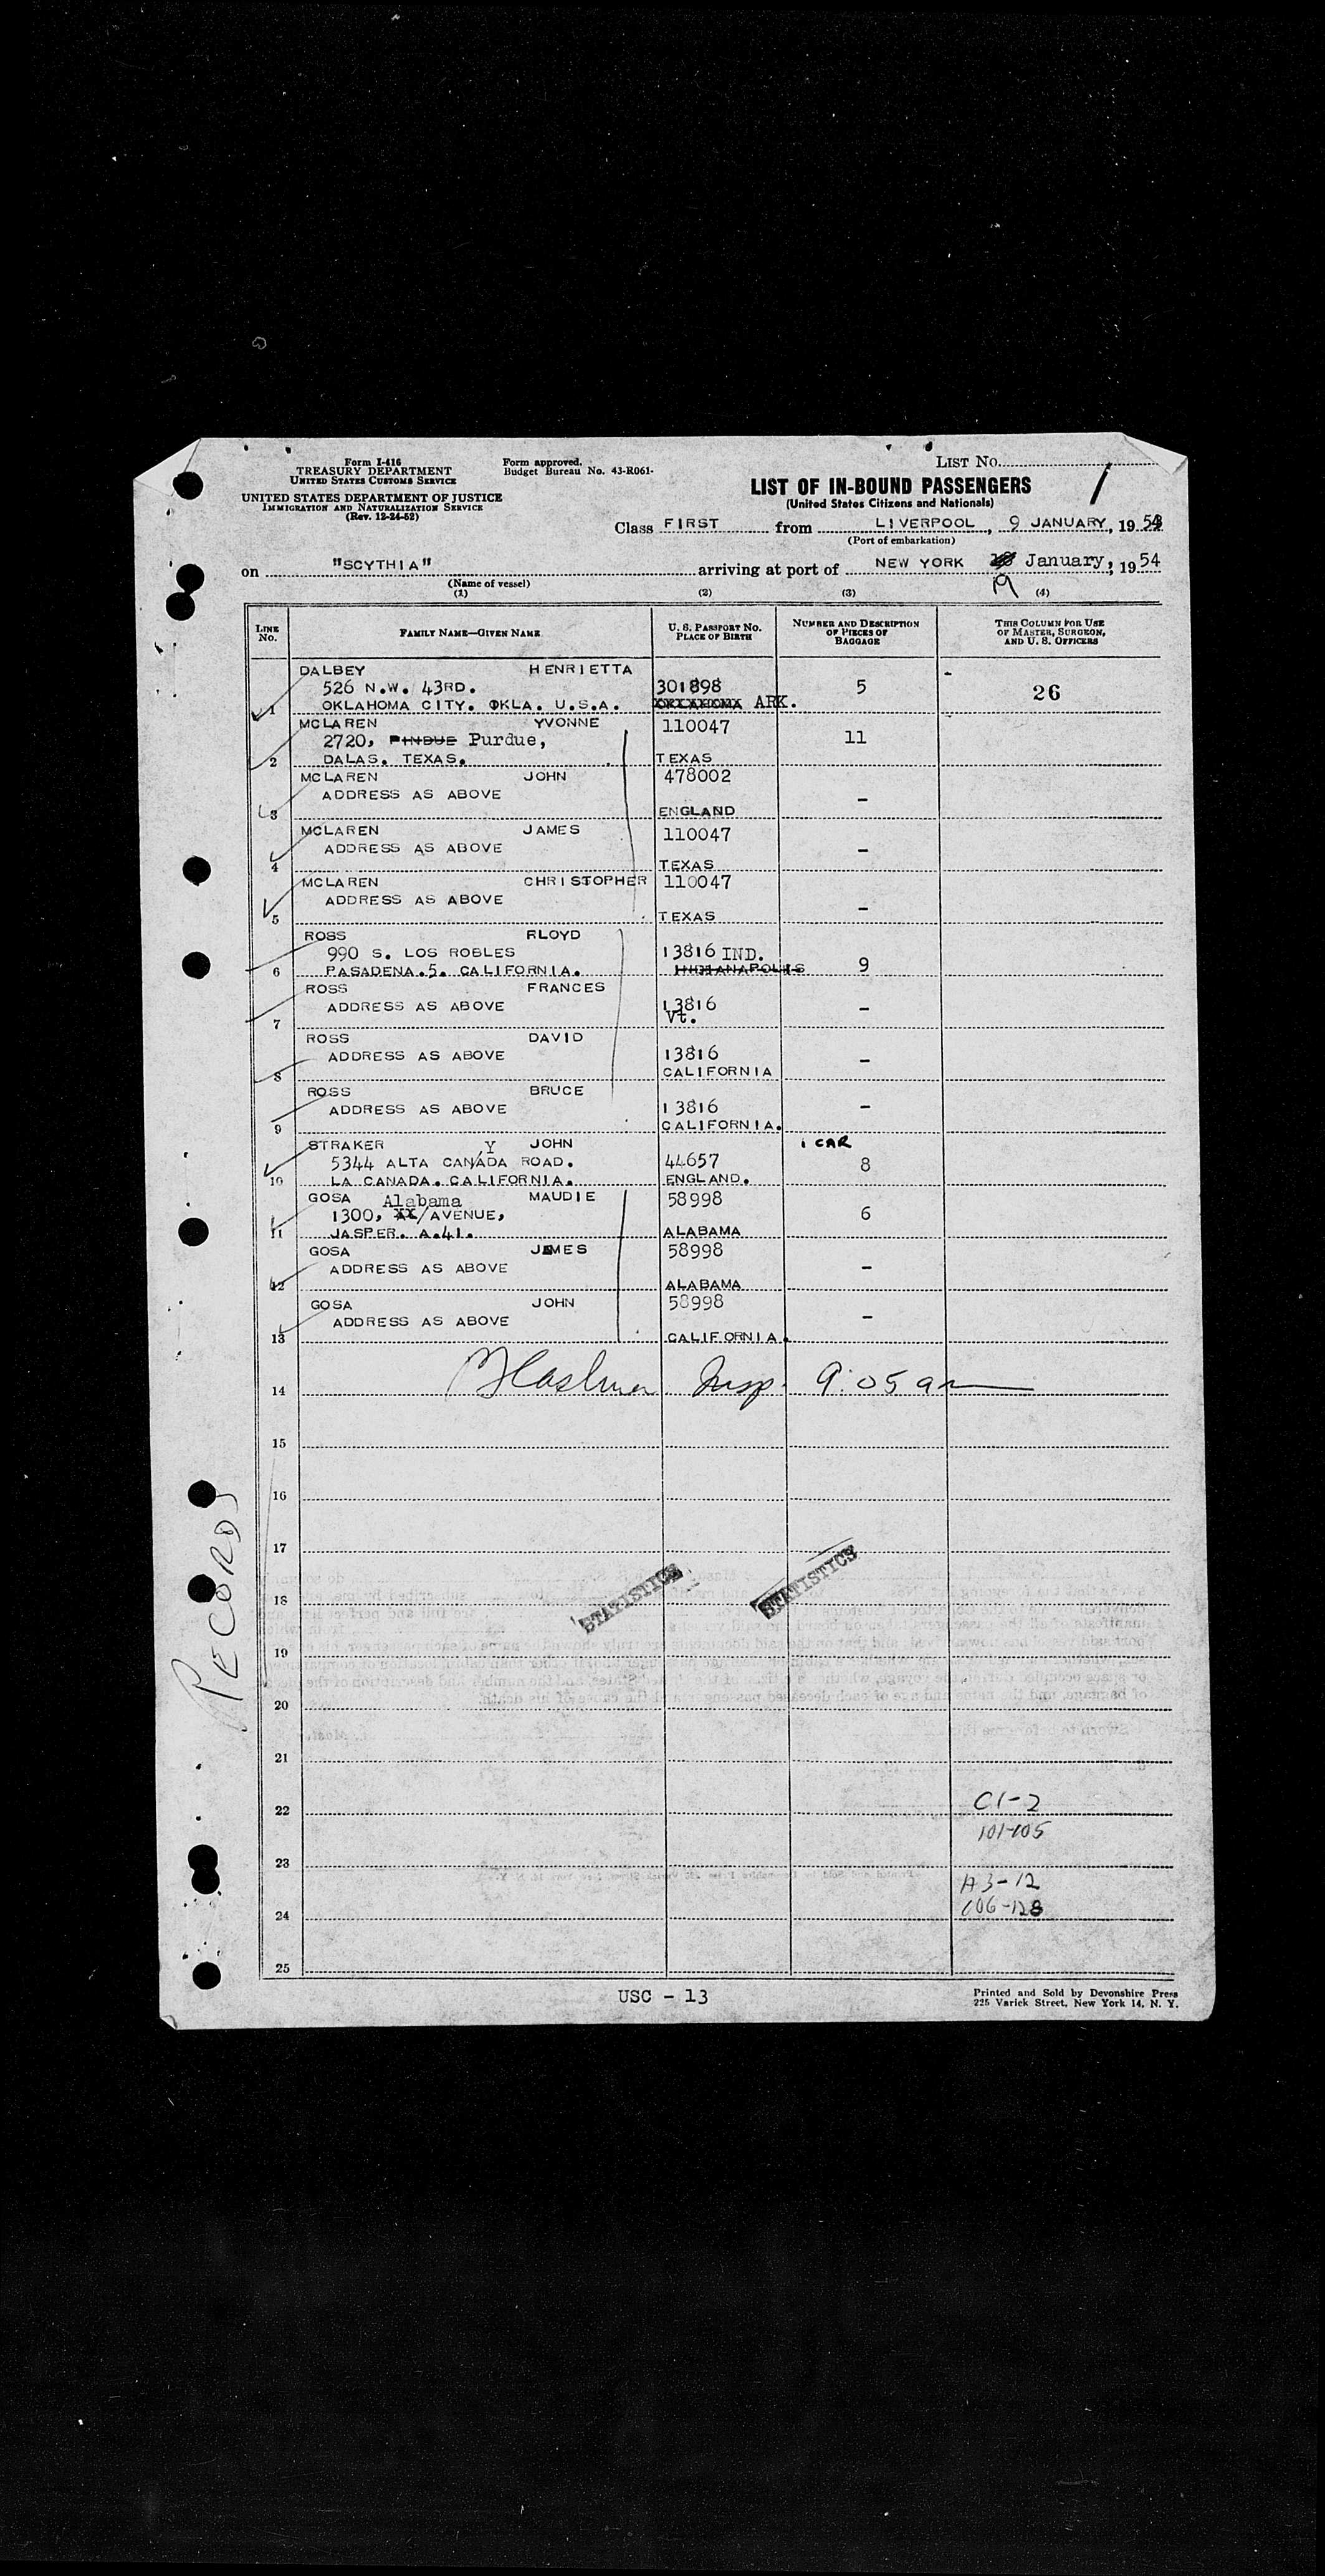 Form I-416
TREASURY DEPARTMENT
UNITED STATES CUSTOMS SERVICE
UNITED STATES DEPARTMENT OF JUSTICE
IMMIGRATION AND NATURALIZATION SERVICE
(Rev. 12-24-52)
Form approved.
Budget Bureau No. 43-R061-
LIST No. 1
LIST OF IN-BOUND PASSENGERS
(United States Citizens and Nationals)
Class FIRST from LIVERPOOL, 9 JANUARY, 1954
(Port of embarkation)
on "SCYTHIA" arriving at port of NEW YORK 19 January, 1954
(Name of vessel)
(1) (2) (3) (4)
LINE No. FAMILY NAME—GIVEN NAME U. S. PASSPORT NO. PLACE OF BIRTH NUMBER AND DESCRIPTION OF PIECES OF BAGGAGE THIS COLUMN FOR USE OF MASTER, SURGEON, AND U. S. OFFICERS
DALBEY HENRIETTA
526 N.W. 43RD. 301898 5 26
1 OKLAHOMA CITY. OKLA. U.S.A. ARK.
MCLAREN YVONNE 110047
2720, PINDUE Purdue, 11
2 DALAS. TEXAS. TEXAS
MCLAREN JOHN 478002
ADDRESS AS ABOVE –
3 ENGLAND
MCLAREN JAMES 110047
ADDRESS AS ABOVE –
4 TEXAS
MCLAREN CHRISTOPHER 110047
ADDRESS AS ABOVE –
5 TEXAS
ROSS RLOYD
990 S. LOS ROBLES 13816 IND.
6 PASADENA.5. CALIFORNIA. INDIANAPOLIS 9
ROSS FRANCES
ADDRESS AS ABOVE 13816 –
7 Vt.
ROSS DAVID
ADDRESS AS ABOVE 13816 –
8 CALIFORNIA
ROSS BRUCE
ADDRESS AS ABOVE 13816 –
9 CALIFORNIA.
STRAKER Y JOHN 1 CAR
5344 ALTA CANADA ROAD. 44657 8
10 LA CANADA. CALIFORNIA. ENGLAND.
GOSA MAUDIE 58998
Alabama
1300, XX/AVENUE, 6
11 JASPER. A.41. ALABAMA
GOSA JAMES 58998
ADDRESS AS ABOVE –
12 ALABAMA
GOSA JOHN 58998
ADDRESS AS ABOVE –
13 CALIFORNIA.
14 Insp. 9:05 am
15
16
17
STATISTICS STATISTICS
18
19
RECORD
20
21
22 C1-2
101-105
23
A3-12
24 106-128
25
USC - 13
Printed and Sold by Devonshire Press
225 Varick Street, New York 14, N. Y.